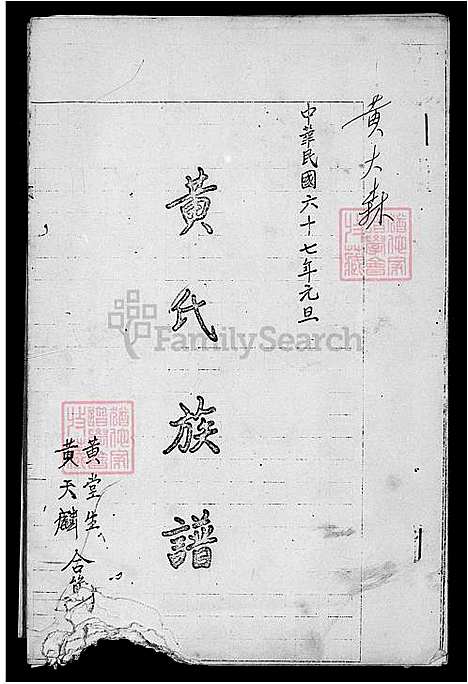 黄大森
中華民國六十七年元旦
黃氏族譜
黄堂生
黄天麟
合篤
FamilySearch